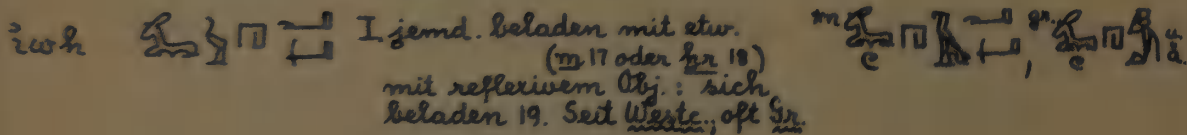 ı͗wh I jemd. beladen mit etw. gr. u. ä.
(m 17 oder ḥr 18)
mit reflexivem Obj.: sich
beladen 19. Seit Westc., oft Gr.